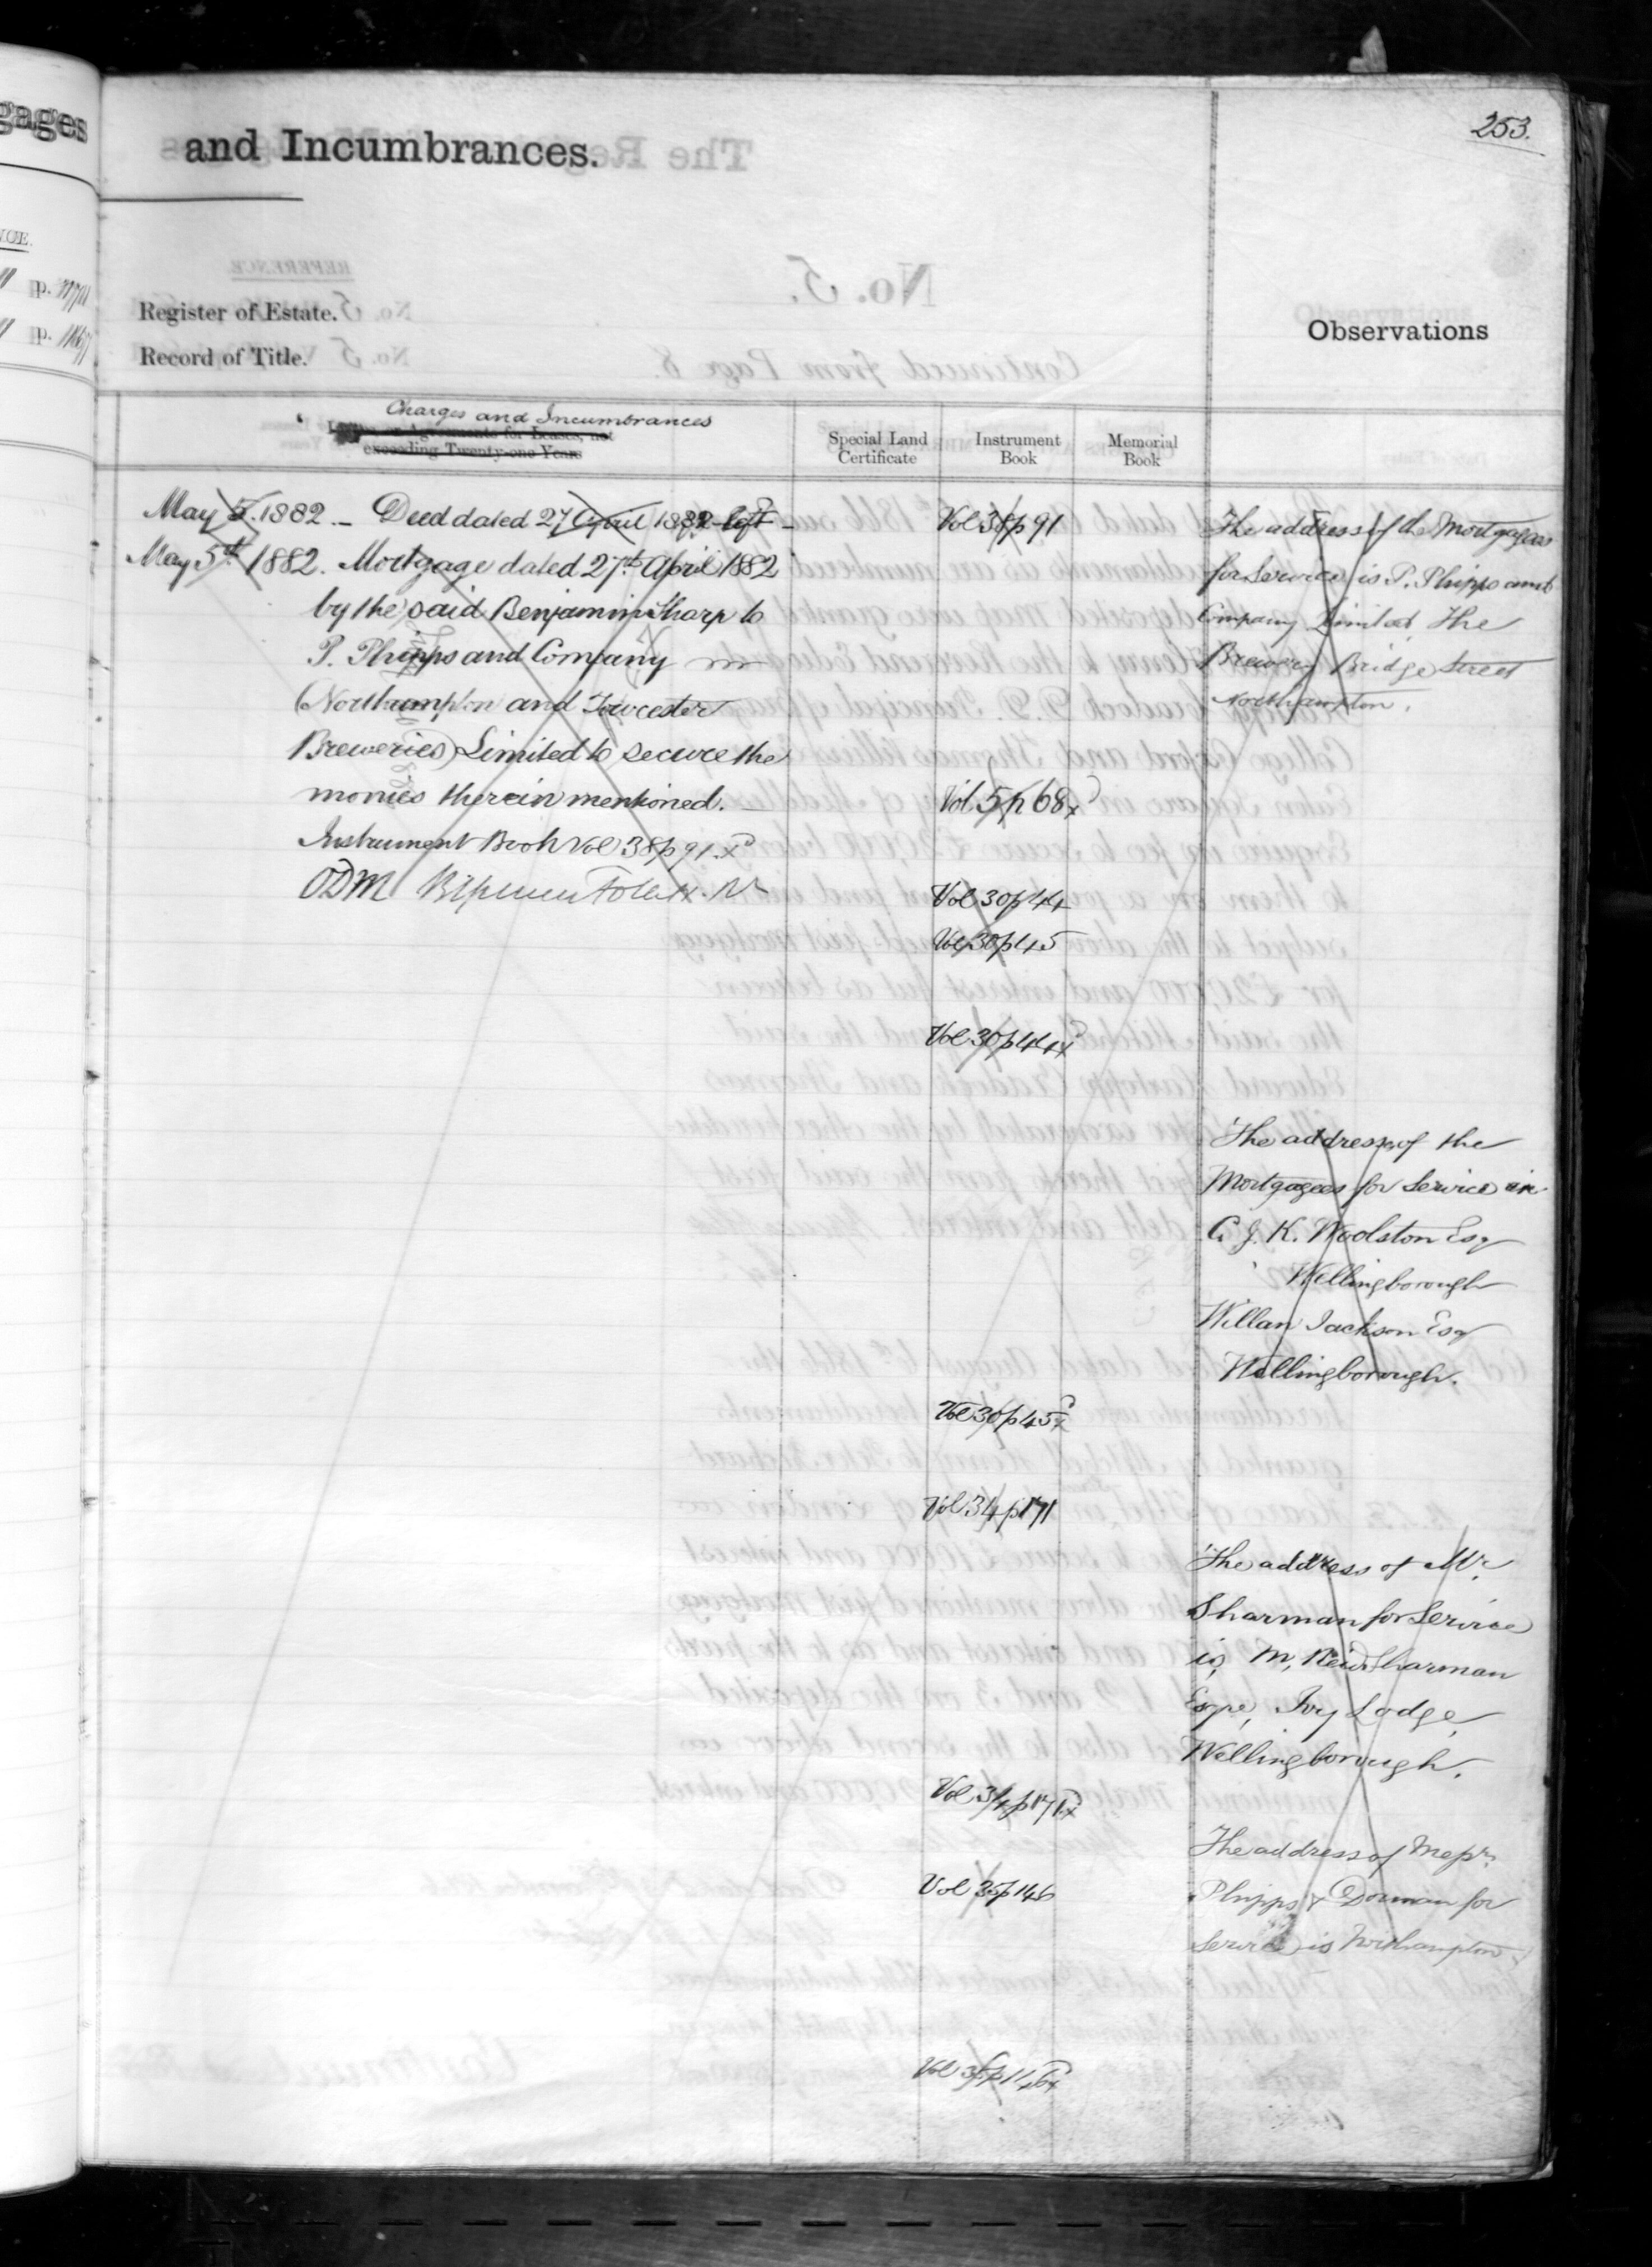 253.
gages
and Incumbrances.
Register of Estate.
Record of Title.
Observations
Charges and Incumbrances
Agreements for Leases, not
exceeding Twenty-one Years
Special Land
Certificate
Instrument
Book
Memorial
Book
May 5. 1882. – Deed dated 27 April 1882 left –
May 5th 1882. Mortgage dated 27th April 1882
by the said Benjamin Sharp to
P. Phipps and Company
(Northampton and Towcester
Breweries) Limited to secure the
monies therein mentioned. –
Instrument Book Vol 38 p 91.
ODM
Vol 38 p 91
Vol 5 p 68
Vol 30 p 44
Vol 30 p 45
Vol 30 p 44
Vol 30 p 45
Vol 34 p 171
Vol 34 p 171
Vol 35 p 146
Vol 35 p 146
The address of the Mortgagees
for Service is P. Phipps and
Company Limited, The
Brewery Bridge Street
Northampton.
The address of the
Mortgagees for Service is
C. J. K. Woolston Esq
Wellingborough
Willan Jackson Esq
Wellingborough.
The address of Mr.
Sharman for Service
is M. Reid Sharman
Esqre, Ivy Lodge,
Wellingborough.
The address of Messrs.
Phipps & Dorman for
Service is Northampton